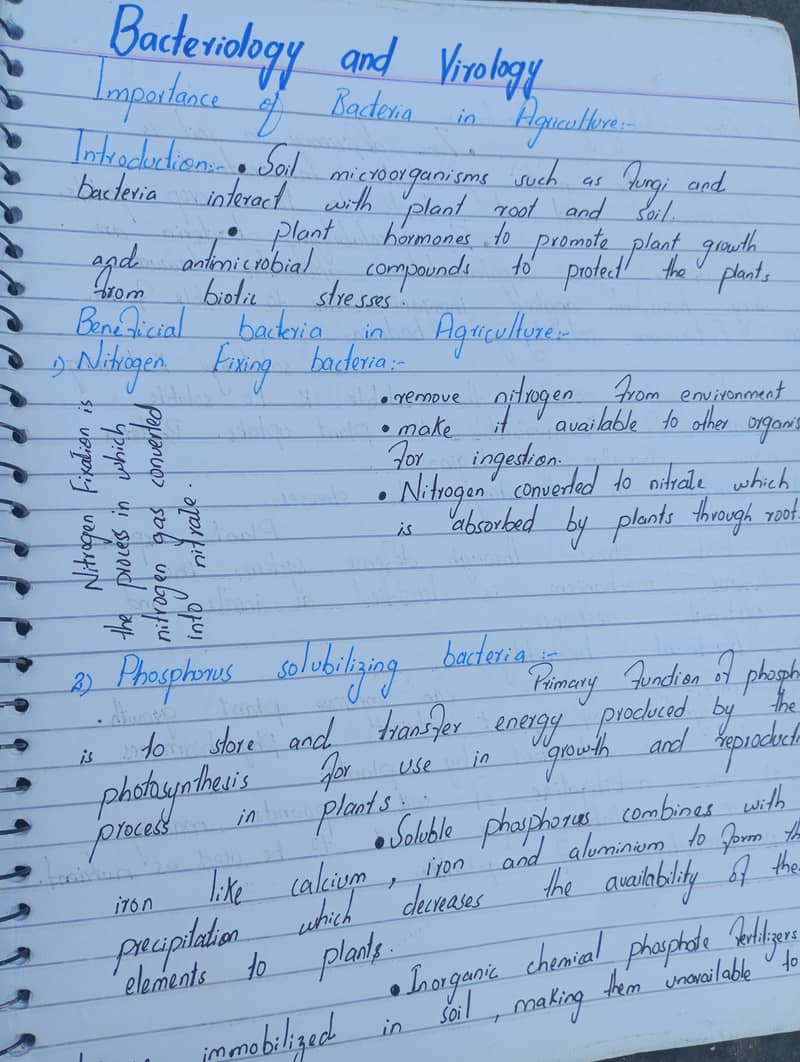 Bacteriology and Virology
Importance of Bacteria in Agriculture:-
Introduction:- • Soil microorganisms such as fungi and
bacteria interact with plant root and soil.
• plant hormones to promote plant growth
and antimicrobial compounds to protect the plants
from biotic stresses.
Beneficial bacteria in Agriculture:-
1) Nitrogen Fixing bacteria:-
• remove nitrogen from environment
• make it available to other organis
for ingestion.
• Nitrogen converted to nitrate which
is absorbed by plants through root.
Nitrogen Fixation is
the process in which
nitrogen gas converted
into nitrate.
2) Phosphorus solubilizing bacteria:-
Primary function of phosph
is to store and transfer energy produced by the
photosynthesis for use in growth and reproducti
process in plants.
• Soluble phosphorus combines with
iron like calcium, iron and aluminium to form th
precipitation which decreases the availability of the
elements to plants.
• Inorganic chemical phosphate fertilizers
immobilized in soil, making them unavailable to